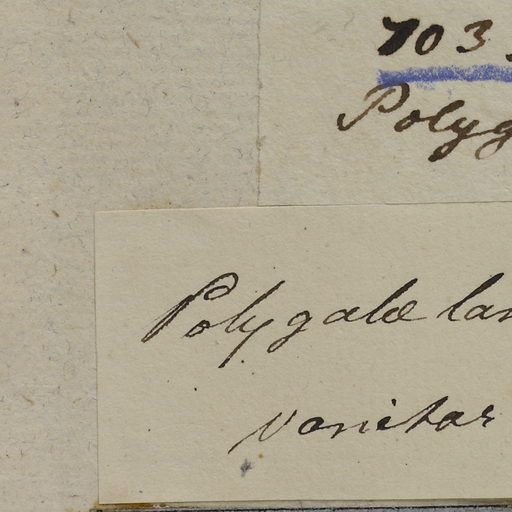 703.
Polyg
Polygalæ lan
vanitas